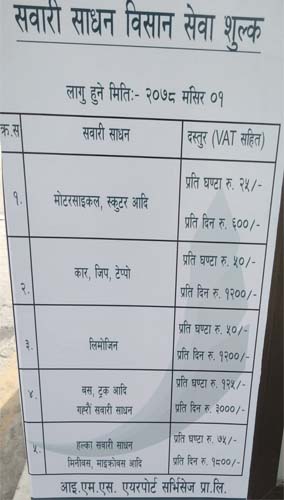 सवारी साधन विसान सेवा शुल्क
लागु हुने मिति:- २०७८ मंसिर ०१
क्र.स सवारी साधन दस्तुर (VAT सहित)
१. मोटरसाइकल, स्कुटर आदि प्रति घण्टा रु. २५/-
प्रति दिन रु. ६००/-
२. कार, जिप, टेम्पो प्रति घण्टा रु. ५०/-
प्रति दिन रु. १२००/-
३. लिमोजिन प्रति घण्टा रु. ५०/-
प्रति दिन रु. १२००/-
४. बस, ट्रक आदि प्रति घण्टा रु. १२५/-
गह्रौं सवारी साधन प्रति दिन रु. ३०००/-
५. हल्का सवारी साधन प्रति घण्टा रु. ७५/-
मिनीबस, माइक्रोबस आदि प्रति दिन रु. १८००/-
आइ.एम.एस. एयरपोर्ट सर्भिसेज प्रा.लि.